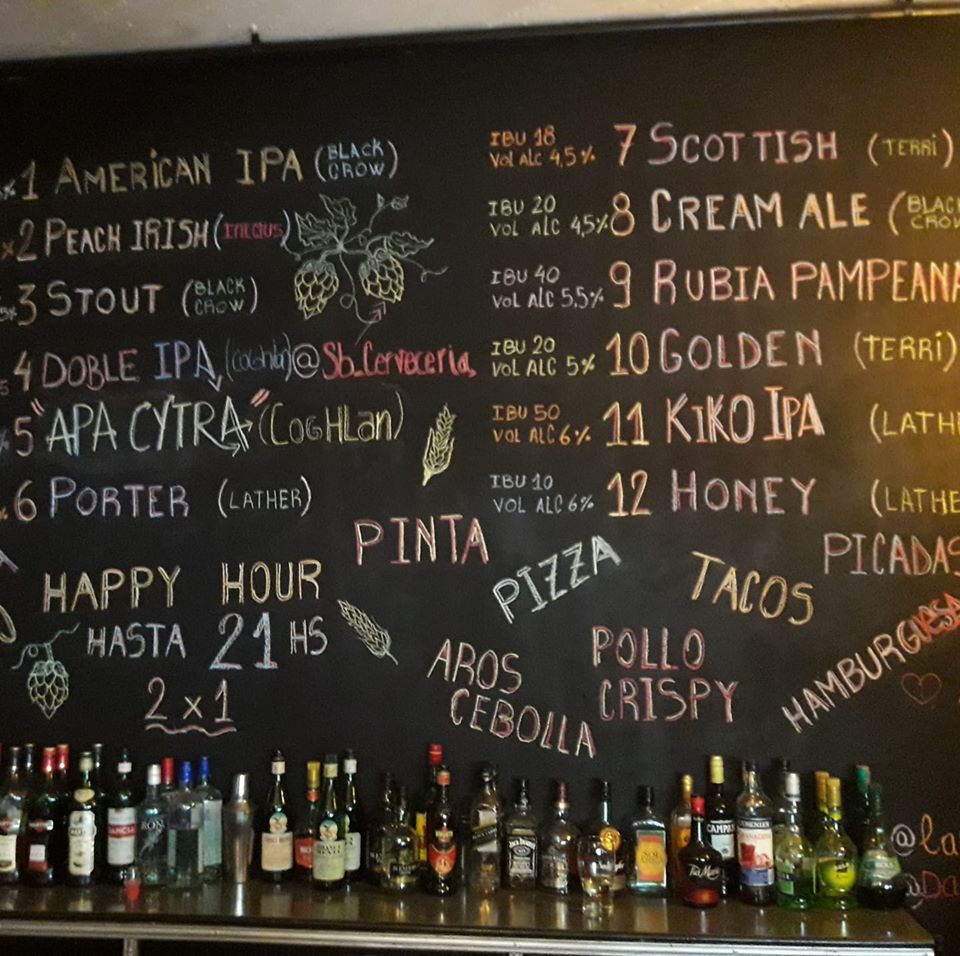 1 AMERICAN IPA (BLACK CROW)
2 PEACH IRISH
3 STOUT (BLACK CROW)
4 DOBLE IPA (Coghlan) @Sb_Cerveceria
5 "APA CYTRA" (COGHLan)
6 PORTER (LATHER)
IBU 18
VOL ALC 4,5%
7 SCOTTISH (TERRI)
IBU 20
VOL ALC 4,5%
8 CREAM ALE (BLACK CROW
IBU 40
VOL ALC 5,5%
9 RUBIA PAMPEANA
IBU 20
VOL ALC 5%
10 GOLDEN (TERRI)
IBU 50
VOL ALC 6%
11 KIKO IPA (LATHE
IBU 10
VOL ALC 6%
12 HONEY (LATHE
HAPPY HOUR
HASTA 21 HS
2 x 1
PINTA
PIZZA
TACOS
PICADAS
AROS
CEBOLLA
POLLO
CRISPY
HAMBURGUESA
@la
CAMPARI
JACK DANIEL'S